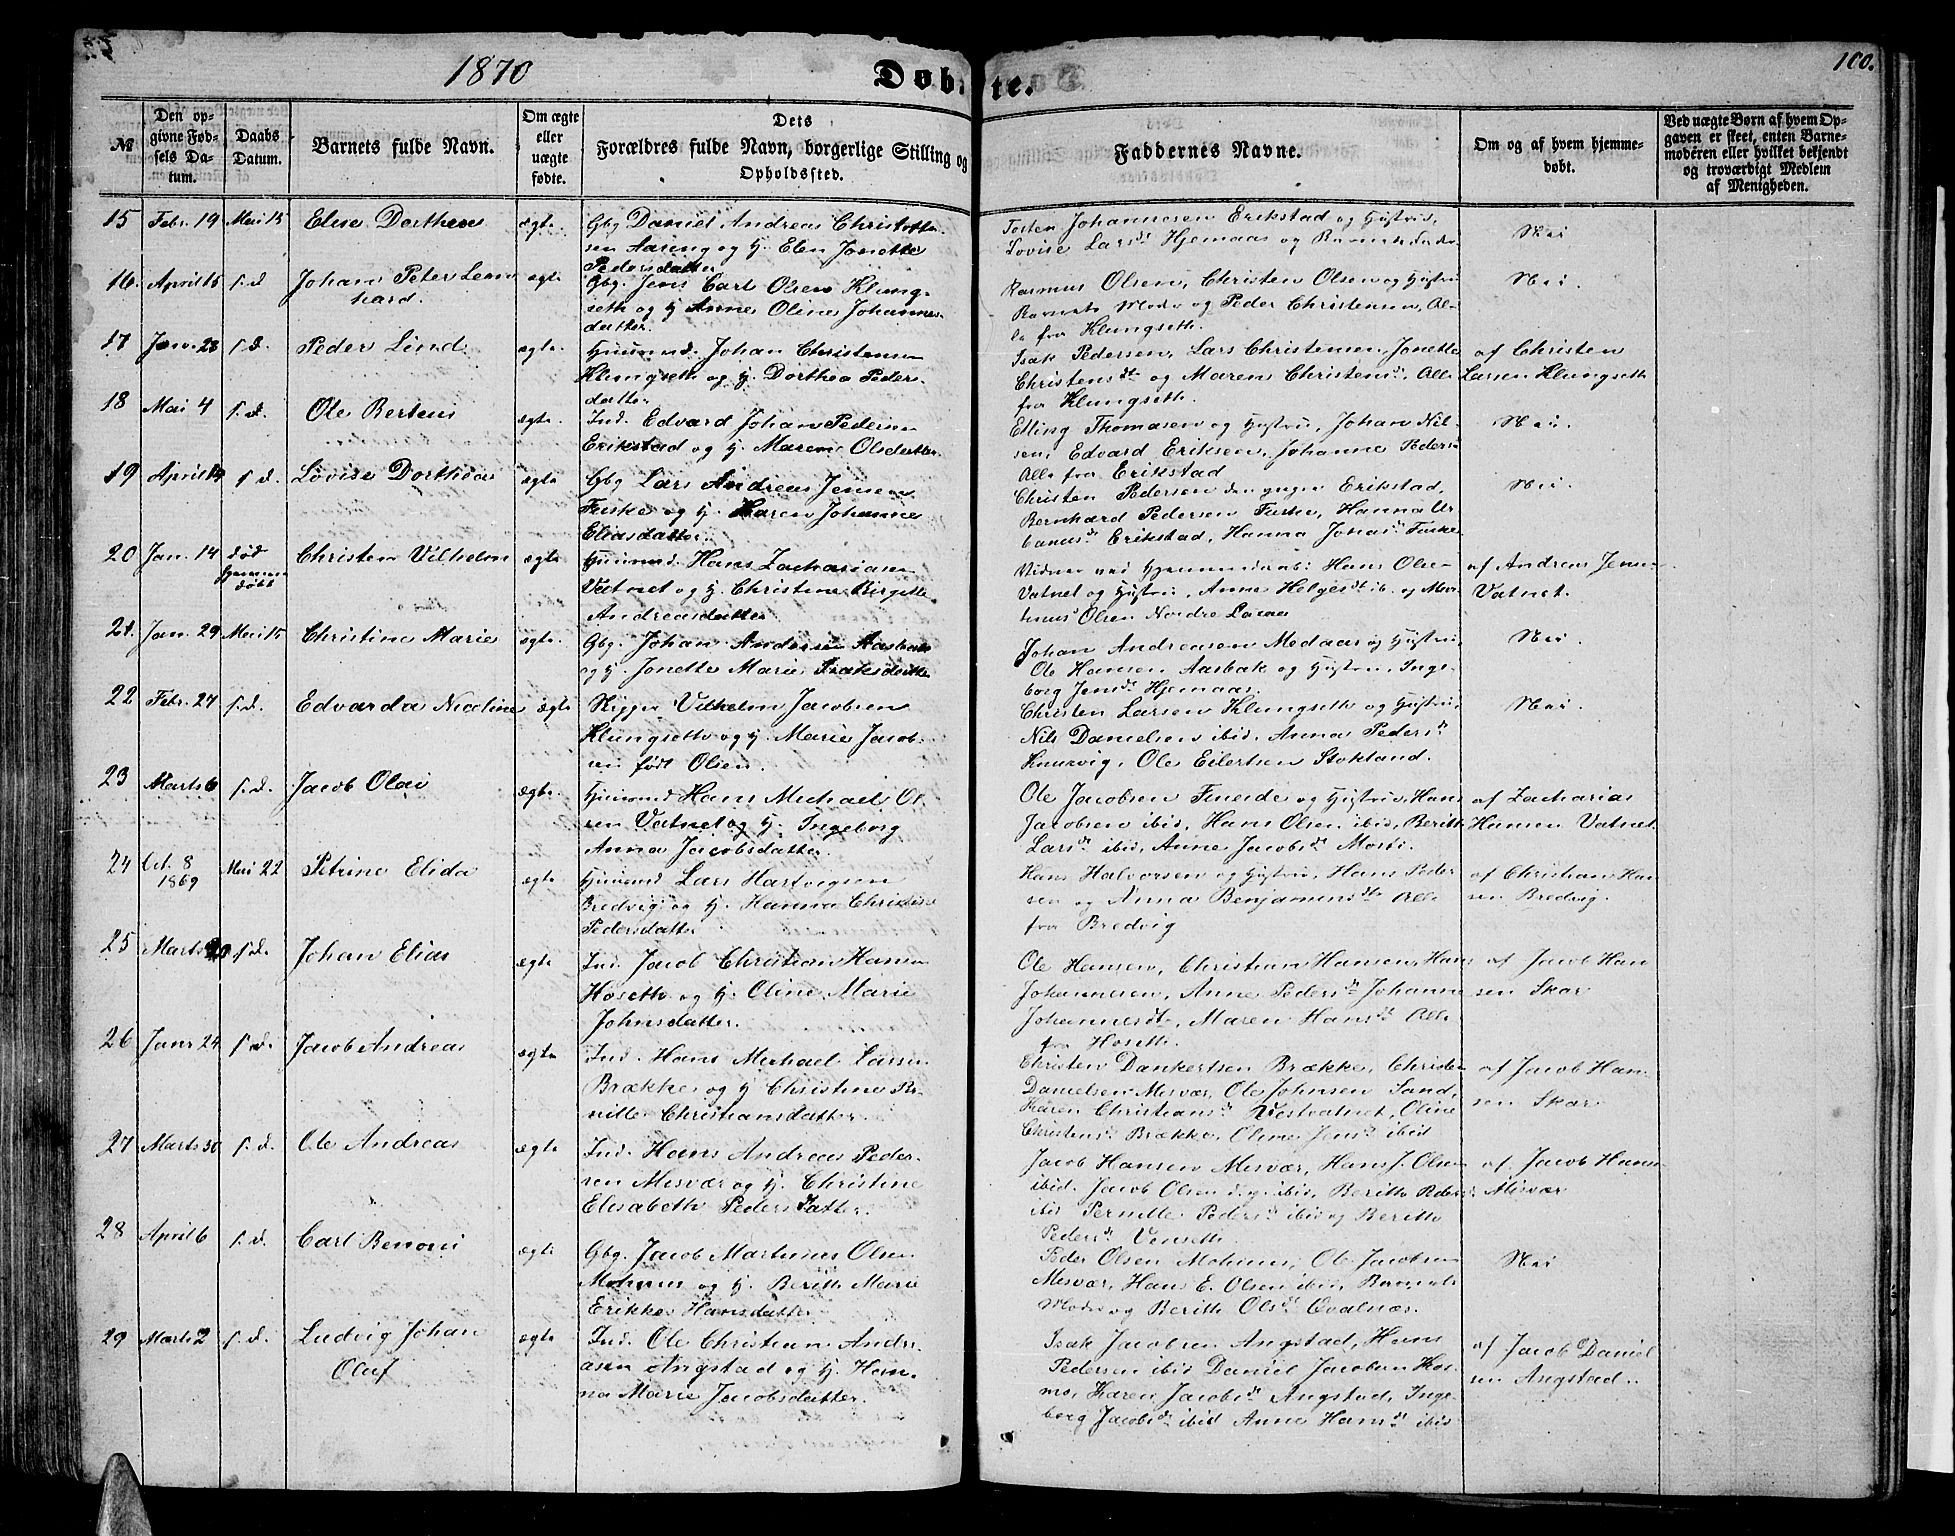 1870
Døbte.
100.
№
Den op-
givne Fød-
sels Da-
tum.
Daabs
Datum.
Barnets fulde Navn.
Om ægte
eller
uægte
fødte.
Dets
Forældres fulde Navn, borgerlige Stilling og
Opholdssted.
Faddernes Navne.
Om og af hvem hjemme-
døbt.
Ved uægte Børn af hvem Op-
gaven er skeet, enten Barne-
moderen eller hvilket bekjendt
og troværdigt Medlem
af Menigheden.
15 Febr. 19 Mai 15 Elise Dorthea ægte. Gbg Daniel Andreas Christoffer-
sen Aaseng og H. Elen Jonette
Pedersdatter
Tosten Johannesen Erikstad og Hustru,
Lovise Larsdt Hjemaas og Barnets Fader
Nei
16. April 15 s. d. Johan Peter Leon-
hard. ægte Gbg. Jens Carl Olsen Klung-
seth og H. Anne Oline Johannes-
datter.
Rasmus Olsen, Christen Olsen og Hustru
Barnets Moder og Peder Christensen, Al-
le fra Klungseth.
Nei.
17 Jan. 23 s. d. Peder Lind ægte. Huusmd. Johan Christensen
Klungseth og H. Dorthea Peders-
datter
Isak Pedersen, Lars Christensen, Jonette
Christensdt og Maren Christensdt, Alle
fra Klungseth.
af Christen
Larsen Klungseth
18 Mai 4 s. d. Ole Berteus ægte. Ind. Edvard Johan Pedersen
Erikstad og H. Maren Olsdatter
Elling Thomasen og Hustru, Johan Nil-
sen, Edvard Eriksen, Johanne Pedersdt
Alle fra Erikstad
Nei.
19 April 19 s. d. Lovise Dorthea ægte Gbg Lars Andreas Jensen
Fuske og H. Karen Johanne
Eliasdatter.
Christen Pedersen den yngre Erikstad,
Bernhard Pedersen Fuske, Hanna Ur-
banusdt Erikstad, Hanna Johasdt Fuske
Nei.
20 Jan. 14 død
Hjemme
døbt Christen Vilhelm ægte Huusmd. Hans Zachariasen
Vatnet og H. Christine Birgitte
Andreasdatter
Vidner ved Hjemmedaab: Hans Olsen
Vatnet og Hustru, Anne Helgesdt ib. og Mor-
tinus Olsen Nordre
af Andreas Jensen
Vatnet.
21. Jan. 29 Mai 15 Christine Marie ægte. Gbg. Johan Andersen Aasbak
og H. Jonette Marie Isaksdatter
Johan Andreasen Medaas og Hustru,
Ole Hansen Aasbak og Hustru, Inge-
borg Jensdt Hjemaas.
Nei.
22 Febr. 24 s. d. Edvarda Nicoline ægte Skipper Vilhelm Jacobsen
Klungseth og H. Marie Jacob-
sen født Olsen.
Christen Larsen Klungseth og Hustru,
Nils Danielsen ibid, Anna Pedersdt
Ole Eilertsen Stokland.
Nei.
23 Marts 6 s. d. Jacob Olai ægte. Huusmd Hans Michael Ol-
sen Vatnet og H. Ingeborg
Anna Jacobsdatter.
Ole Jacobsen Fineide og Hustru, Hans
Jacobsen ibid, Hans Olsen ibid, Berith
Larsdt ibid, Anne Jacobsdt
af Zacharias
Hansen Vatnet.
24 Oct. 8
1869 Mai 22 Petrine Elida ægte Huusmd Lars Hartvigsen
Bredvig og H. Hanna Christine
Pedersdatter
Hans Halvorsen og Hustru, Hans Peder-
sen og Anna Benjaminsdt Alle
fra Bredvig
af Christian Han-
sen Bredvig.
25 Marts s. d. Johan Elias ægte Ind. Jacob Christian Hansen
Hoseth og H. Oline Marie
Johnsdatter.
Ole Hansen, Christian Hansen, Hans
Johannesen, Anne Pedersdt Johanne
Johannesdt, Maren Hansdt Alle
fra Hoseth.
af Jacob Han-
sen Skar
26 Janr 24 s. d. Jacob Andreas ægte Ind. Hans Michael Larsen
Brække og H. Christine Per-
nille Christiansdatter.
Christen Dankertsen Brække, Christen
Danielsen Misvær, Ole Johnsen Sand,
Karen Christiansdt Vestvatnet, Oline
Christensdt Brække, Oline Jensdt ibid
af Jacob Han-
sen Skar
27 Marts 30 s. d. Ole Andreas ægte Ind. Hans Andreas Peder-
sen Misvær og H. Christine
Elisabeth Pedersdatter.
Jacob Hansen Misvær, Hans J. Olsen
ibid. Jacob Olsen d. y. ibid, Berith Pedersdt
ibid Pernille Pedersdt ibid og Berith
Pedersdt Venseth.
af Jacob Hansen
Misvær
28 April 6 s. d. Carl Benoni ægte Gbg. Jacob Martinus Olsen
Mohuus og H. Berith Marie
Erikke Hansdatter
Peder Olsen Mohuus, Ole Jacobsen
Misvær, Hans E. Olsen ibid, Barnets
Moder og Berith Olsdt Qvalnæs.
Nei
29 Marts 2 s. d. Ludvig Johan
Oluf ægte Ind. Ole Christian Andre-
asen Angstad og H. Han-
na Marie Jacobsdatter.
Isak Jacobsen Angstad, Hans
Pedersen ibid Daniel Jacobsen Kos-
mo, Karen Jacobsdt Angstad, Inge-
borg Jacobsdt ibid Anne Hansdt ibid
af Jacob Daniel-
sen Angstad.